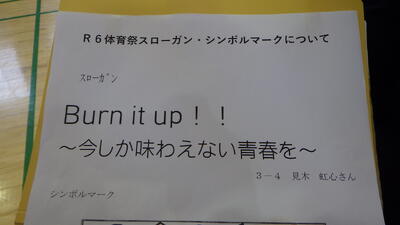 R6体育祭スローガン・シンボルマークについて
スローガン
Burn it up！！
～今しか味わえない青春を～
3－4 見木 虹心さん
シンボルマーク